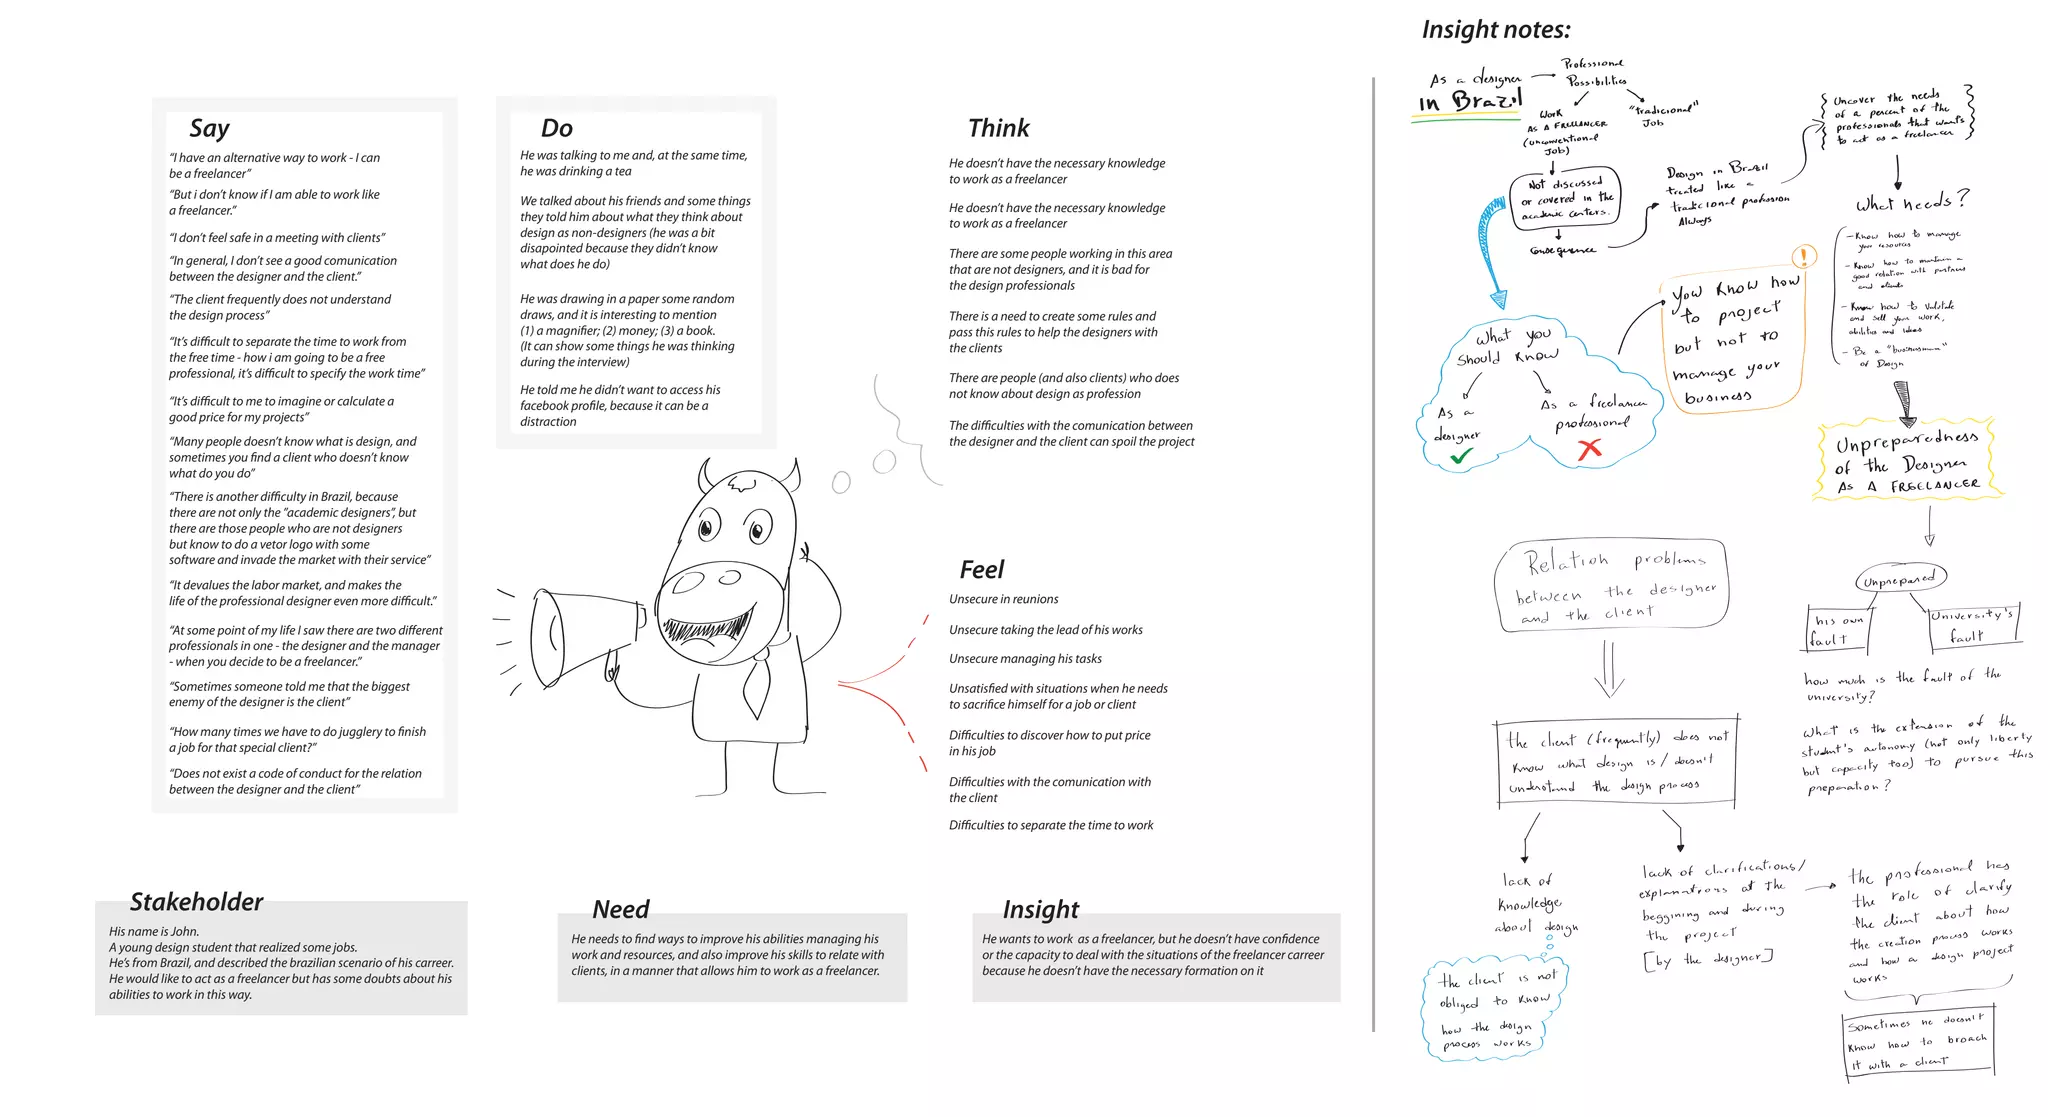 Say
“I have an alternative way to work - I can
be a freelancer”
“But i don’t know if I am able to work like
a freelancer.”
“I don’t feel safe in a meeting with clients”
“In general, I don’t see a good comunication
between the designer and the client.”
“The client frequently does not understand
the design process”
“It’s difficult to separate the time to work from
the free time - how i am going to be a free
professional, it’s difficult to specify the work time”
“It’s difficult to me to imagine or calculate a
good price for my projects”
“Many people doesn’t know what is design, and
sometimes you find a client who doesn’t know
what do you do”
“There is another difficulty in Brazil, because
there are not only the “academic designers”, but
there are those people who are not designers
but know to do a vetor logo with some
software and invade the market with their service”
“It devalues the labor market, and makes the
life of the professional designer even more difficult.”
“At some point of my life I saw there are two different
professionals in one - the designer and the manager
- when you decide to be a freelancer.”
“Sometimes someone told me that the biggest
enemy of the designer is the client”
“How many times we have to do jugglery to finish
a job for that special client?”
“Does not exist a code of conduct for the relation
between the designer and the client”
Do
He was talking to me and, at the same time,
he was drinking a tea
We talked about his friends and some things
they told him about what they think about
design as non-designers (he was a bit
disapointed because they didn’t know
what does he do)
He was drawing in a paper some random
draws, and it is interesting to mention
(1) a magnifier; (2) money; (3) a book.
(It can show some things he was thinking
during the interview)
He told me he didn’t want to access his
facebook profile, because it can be a
distraction
Think
He doesn’t have the necessary knowledge
to work as a freelancer
He doesn’t have the necessary knowledge
to work as a freelancer
There are some people working in this area
that are not designers, and it is bad for
the design professionals
There is a need to create some rules and
pass this rules to help the designers with
the clients
There are people (and also clients) who does
not know about design as profession
The difficulties with the comunication between
the designer and the client can spoil the project
Feel
Unsecure in reunions
Unsecure taking the lead of his works
Unsecure managing his tasks
Unsatisfied with situations when he needs
to sacrifice himself for a job or client
Difficulties to discover how to put price
in his job
Difficulties with the comunication with
the client
Difficulties to separate the time to work
Stakeholder
His name is John.
A young design student that realized some jobs.
He’s from Brazil, and described the brazilian scenario of his carreer.
He would like to act as a freelancer but has some doubts about his
abilities to work in this way.
Need
He needs to find ways to improve his abilities managing his
work and resources, and also improve his skills to relate with
clients, in a manner that allows him to work as a freelancer.
Insight
He wants to work as a freelancer, but he doesn’t have confidence
or the capacity to deal with the situations of the freelancer carreer
because he doesn’t have the necessary formation on it
Insight notes:
As a designer
in Brazil
Professional
Possibilities
Work
As a freelancer
(unconventional
Job)
"tradicional"
Job
Not discussed
or covered in the
academic centers.
Consequence
Design in Brazil
treated like a
tradicional profession
Always
Uncover the needs
of a percent of the
professionals that wants
to act as a freelancer
What needs?
- Know how to manage
your resources
- Know how to maintain a
good relation with partners
and clients
- Know how to validate
and sell your work,
abilities and ideas
- Be a "businessman"
of Design
What you
Should know
As a
designer
As a freelancer
professional
!
You know how
to project
but not to
manage your
business
Unpreparedness
of the Designer
As a freelancer
Unprepared
his own
fault
University's
fault
how much is the fault of the
university?
What is the extension of the
student's autonomy (not only liberty
but capacity too) to pursue this
preparation?
Relation problems
between the designer
and the client
the client (frequently) does not
know what design is / doesn't
understand the design process
lack of
knowledge
about design
the client is not
obliged to know
how the design
process works
lack of clarifications/
explanations at the
beggining and during
the project
[by the designer]
the professional has
the role of clarify
the client about how
the creation process works
and how a design project
works
Sometimes he doesn't
know how to broach
it with a client